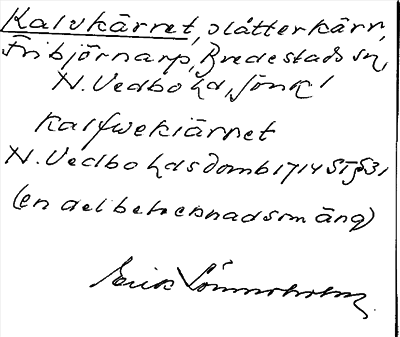 Kalvkärret, slåtterkärr,
Fribjörnarp, Bredestads sn,
N. Vedbo hd, Jönk l
Kalfwekiärret
N. Vedbo hds domb 1714 ST § 31
(en del betecknad som äng)
Erik Lönnerholm